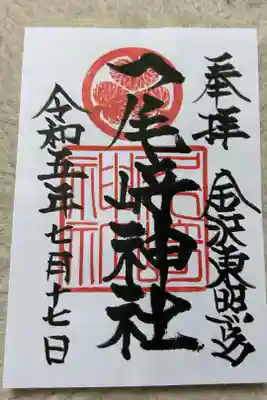 奉拝
金沢東照宮
尾﨑神社
令和五年七月十七日